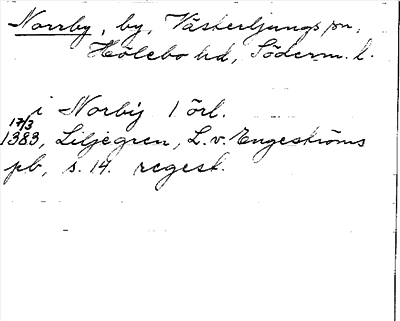 Norrby, by, Västerljungs sn,
Hölebo hd, Söderm. l.
i Norby 1 örl.
17/3
1383, Liljegren, L. v. Engeströms
pb, s. 14. regest.